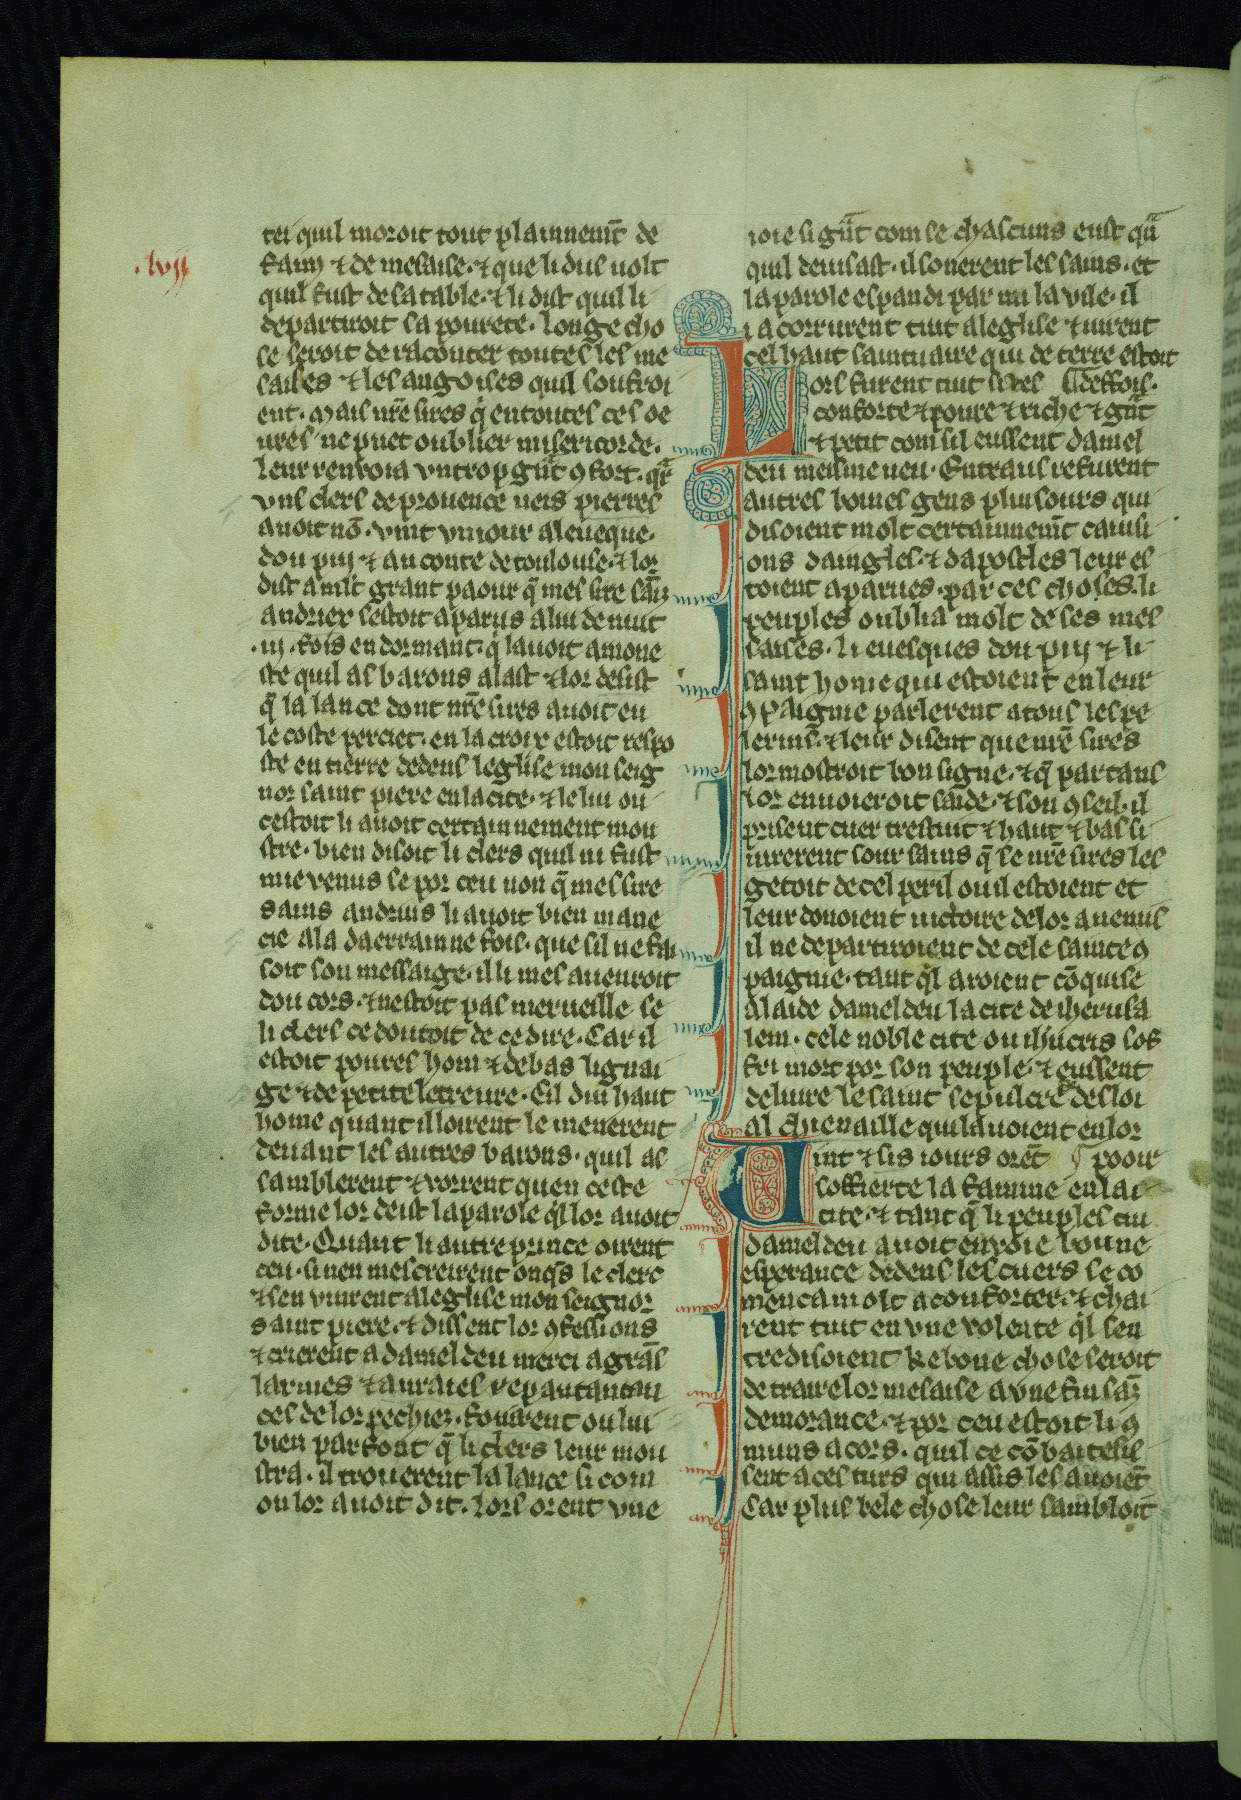 .lvii.
tei quil moroit tout plainnemt̄ de
faim ⁊ de mesaise. ⁊ que li dus uolt
quil fust de sa table. ⁊ li dist quil li
departiroit sa pourete. longe cho
se seroit de raconter toutes les me
saises ⁊ les angoises quil soufroi
ent. Mais nr̄e sires q̄ en toutes ces oe
ures ne puet oublier misericorde.
leur renuoia vn trop gr̄at ꝯfort. qr̄
vns clers de prouence ueis pierres
auoit nō. vint vn iour a leueque.
dou pui ⁊ au conte de toulouse. ⁊ lor
dist a mlt̄ grant paour q̄ mes sire sāin
andriex sestoit aparus a lui de nuit
.iii. fois en dormant. q̄ lauoit amone
ste quil as barons alast ⁊ lor desist
q̄ la lance dont nr̄e sires auoit eu
le coste perciet. en la croix estoit respo
ste en tierre dedens leglise mon seig
nor saint piere en la cite. ⁊ le liu ou
cestoit li auoit certainnement mou
stre. bien disoit li clers quil ni fust
mie venus se por ceu non q̄ mes sire
sains andrius li auoit bien mane
cie a la daerrainne fois. que sil ne fai
soit son messaige. il li mesauenroit
dou cors. ⁊ nestoit pas merueille se
li clers ce doutoit de ce dire. Car il
estoit poures hom ⁊ de bas lignai
ge ⁊ de petite letreure. Cil diu haut
home quant il loirent le menerent
deuant les autres barons. quil as
samblerent ⁊ vorrent quen ceste
forme lor deist la parole q̄l lor auoit
dite. Quant li autre prince oirent
ceu. si nen mescreirent onq̄s le clerc
⁊ sen vinrent a leglise mon seignor
saint piere. ⁊ dissent lor ꝯfessions
⁊ crierent a dameldeu merci a grās
larmes ⁊ a uraies repantantan
ces de lor pechiez. fouirent ou lui
bien parfont q̄ li clers leur mou
stra. il trouerent la lance si com
ou lor auoit dit. lors orent vne
ioie si gr̄at com se chascuns eust qr̄a
quil deuisast. il sonerent les sains. et
la parole espandi par mi la vile. il
i acorrurent tuit a leglise ⁊ uirent
cel haut saintuaire qui de terre estoit
Lors furent tuit li ¶ deffois.
conforte ⁊ poure ⁊ riche ⁊ gr̄at
⁊ petit com sil eussent damel
deu meisme ueu. Entraus refurent
autres bonnes gens pluisours qui
disoient molt certainnemt̄ cauisi
ons daingles. ⁊ dapostles leur es
toient aparues. par ces choses. li
peuples oublia molt de ses mes
saises. li euesques dou pui ⁊ li
saint home qui estoient en leur
ꝯpaignie parlerent a tous les pe
lerins. ⁊ leur disent que nr̄e sires
lor mostroit bon signe. ⁊ q̄ par tans
lor enuoieroit saide. ⁊ son ꝯseil. il
prisent cuer trestuit ⁊ haut ⁊ bas si
iurerent sour sains q̄ se nr̄e sires les
getoit de cel peril ou il estoient et
leur donoient uictoire de lor anemis
il ne departiroient de cele sainte ꝯ
paignie. tant q̄l aroient cōquise
a laide dameldeu la cite de iherusa
lem. cele noble cite ou ihūcris sof
fri mort por son peuple. ⁊ eussent
deliure le saint sepulcre desloi
al chienaille qui lauoient en lor
Uint ⁊ sis iours orēt ¶ pooir
soffierte la famine en lai
cite. ⁊ tant q̄ li peuples cui
dameldeu auoit enuoie bonne
esperance dedens les cuers se co
menca molt a conforter. ⁊ chai
rent tuit en vne volente q̄l sen
tredisoient ke bone chose seroit
de traire lor mesaise a vne fin sāz
demorance. ⁊ por ceu estoit li ꝯ
muns acors. quil ce cōbatesis
sent a ces turs qui assis les auoiēt
Car plus bele chose leur sambloit